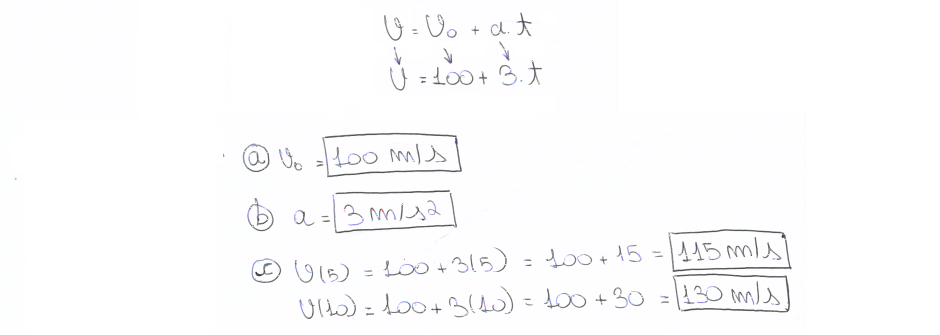 V = V₀ + a.t
V = 100 + 3.t
a) V₀ = 100 m/s
b) a = 3 m/s2
c) V(5) = 100 + 3(5) = 100 + 15 = 115 m/s
V(10) = 100 + 3(10) = 100 + 30 = 130 m/s